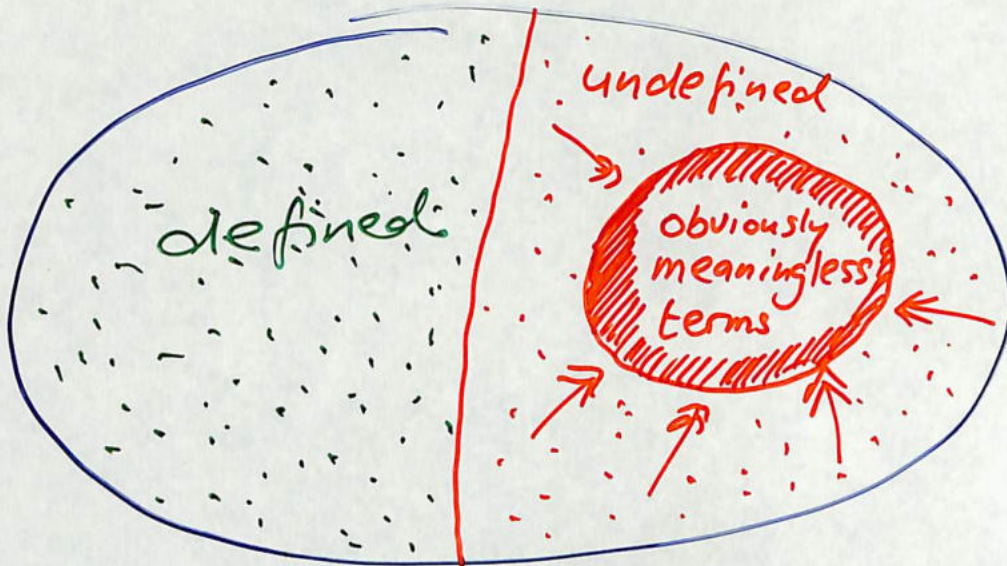 undefined
defined
obviously
meaningless
terms